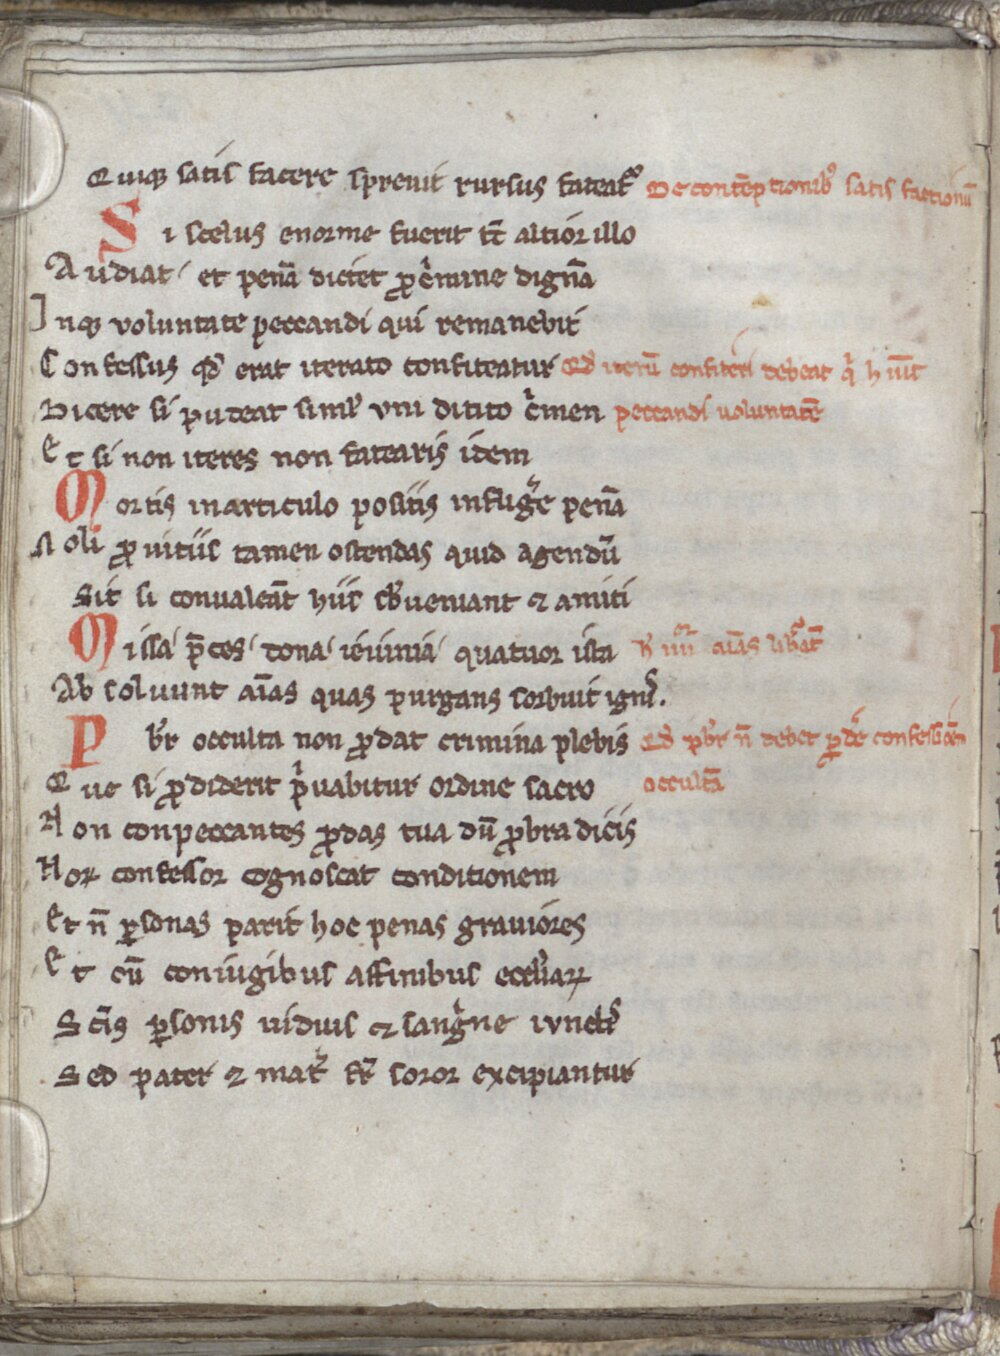 Quiq satis facere spreuit rursus fateat᷑ De contēptionib᷒ satis factionū
Si scelus enorme fuerit tc̄ altior illo
Audiat et penā dictet ꝓ c̍mine dignā
Inq voluntate peccandi qui remanebit
Confessus qd̵ erat iterato confiteatur Qd iterū confiteri debeat q̍ h̵ uīt
Dicere si pudeat siml̵ vni dicito c̍men peccandi voluntatē
Et si non iteres non fatearis idem
Mortis in articulo positis infligr̄e penā
Noli ꝓ uitiis tamen ostendas quid agendū
Sit si conualeāt hiis sb̵ueniant ⁊ amici
Missa p̄ces dona ieiunia quatuor ista ꝙ iiii᷑ aīas lib̵āt
Absoluunt aīas quas purgans sorbuit ignis.
Pb̵r occulta non ꝓdat crimina plebis Qd pb̵r n̄ debet ꝓdē confessiōem
Que si ꝓdiderit p̍uabitur ordine sacro occultā
Non conpeccantes ꝓdas tua dū ꝓbra dicis
Noꝝ confessor cognoscat conditionem
Et n̄ ꝑsonas parit hoc penas grauiores
Et cū coniugibus affinibus eccl̵iaꝝ
Sc̄is ꝑsonis uiduis ⁊ sang̍ne iunctis
Sed pater ⁊ mat᷑ fr̄ soror excipiantur